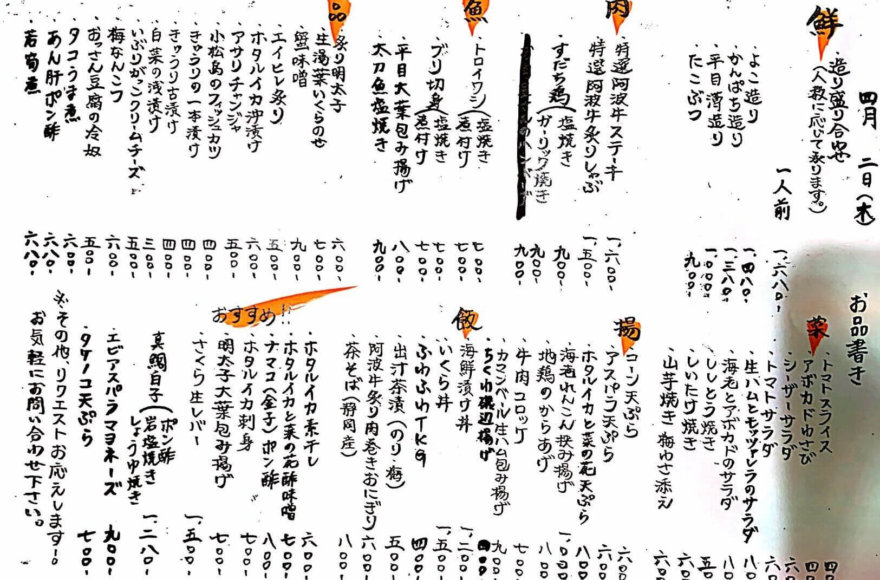 四月 二日(木) お品書き
鮮
造り盛り合せ
(人数に応じて承ります。)
一人前 一、六八〇-
よこ造り 一、四八〇-
かんぱち造り 一、三八〇-
平目薄造り 一、〇〇〇-
たこぶつ 九〇〇-
肉
特選阿波牛ステーキ 一、六〇〇-
特選阿波牛炙りしゃぶ 一、五〇〇-
すだち鶏(塩焼き 九〇〇-
ガーリック焼き 九〇〇-
九〇〇-
魚
トロイワシ(塩焼き 七〇〇-
煮付け 七〇〇-
ブリ切身(塩焼き 七〇〇-
煮付け 七〇〇-
平目大葉包み揚げ 八〇〇-
太刀魚塩焼き 九〇〇-
品
炙り明太子 六〇〇-
生湯葉いくらのせ 七〇〇-
蟹味噌 九〇〇-
エイヒレ炙り 五〇〇-
ホタルイカ沖漬け 六〇〇-
アサリチャンジャ 五〇〇-
小松島のフィッシュカツ 四〇〇-
きゅうりの一本漬け 四〇〇-
きゅうり古漬け 四〇〇-
白菜の浅漬け 三〇〇-
いぶりがっこクリームチーズ 五〇〇-
梅なんこつ 六〇〇-
おっさん豆腐の冷奴 五〇〇-
タコうま煮 六〇〇-
あん肝ポン酢 六八〇-
若筍煮 六八〇-
菜
トマトスライス 四〇〇
アボカドわさび 四〇〇
シーザーサラダ 六〇〇
トマトサラダ 六〇〇
生ハムとモッツァレラのサラダ 八〇〇
海老とアボカドのサラダ 八〇〇
ししとう焼き 五〇〇
しいたけ焼き 六〇〇
山芋焼き 梅わさ添え 六〇〇
揚
コーン天ぷら 六〇〇
アスパラ天ぷら 六〇〇
ホタルイカと菜の花天ぷら
海老れんこん挟み揚げ
地鶏のからあげ 八〇〇
牛肉コロッケ
カマンベール生ハム包み揚げ 九〇〇
ちくわ磯辺揚げ
飯
海鮮漬け丼 一、二〇〇-
いくら丼 一、五〇〇-
ふわふわTKG 四〇〇-
出汁茶漬(のり・梅) 五〇〇-
阿波牛炙り肉巻きおにぎり 六〇〇-
茶そば(静岡産) 八〇〇-
おすすめ!!
ホタルイカ素干し 六〇〇-
ホタルイカと菜の花酢味噌 七〇〇-
ナマコ(金子)ポン酢 八〇〇-
ホタルイカ刺身 七〇〇-
明太子大葉包み揚げ 七〇〇-
さくら生レバー 一、五〇〇-
真鯛白子(ポン酢
岩塩焼き
しょうゆ焼き 一、二八〇-
エビアスパラマヨネーズ 九〇〇-
タケノコ天ぷら 七〇〇-
※その他、リクエストお応えします!。
お気軽にお問い合わせ下さい。